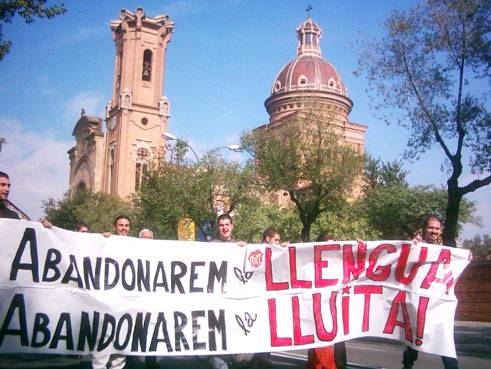 ABANDONAREM la LLENGUA
ABANDONAREM la LLUITA!